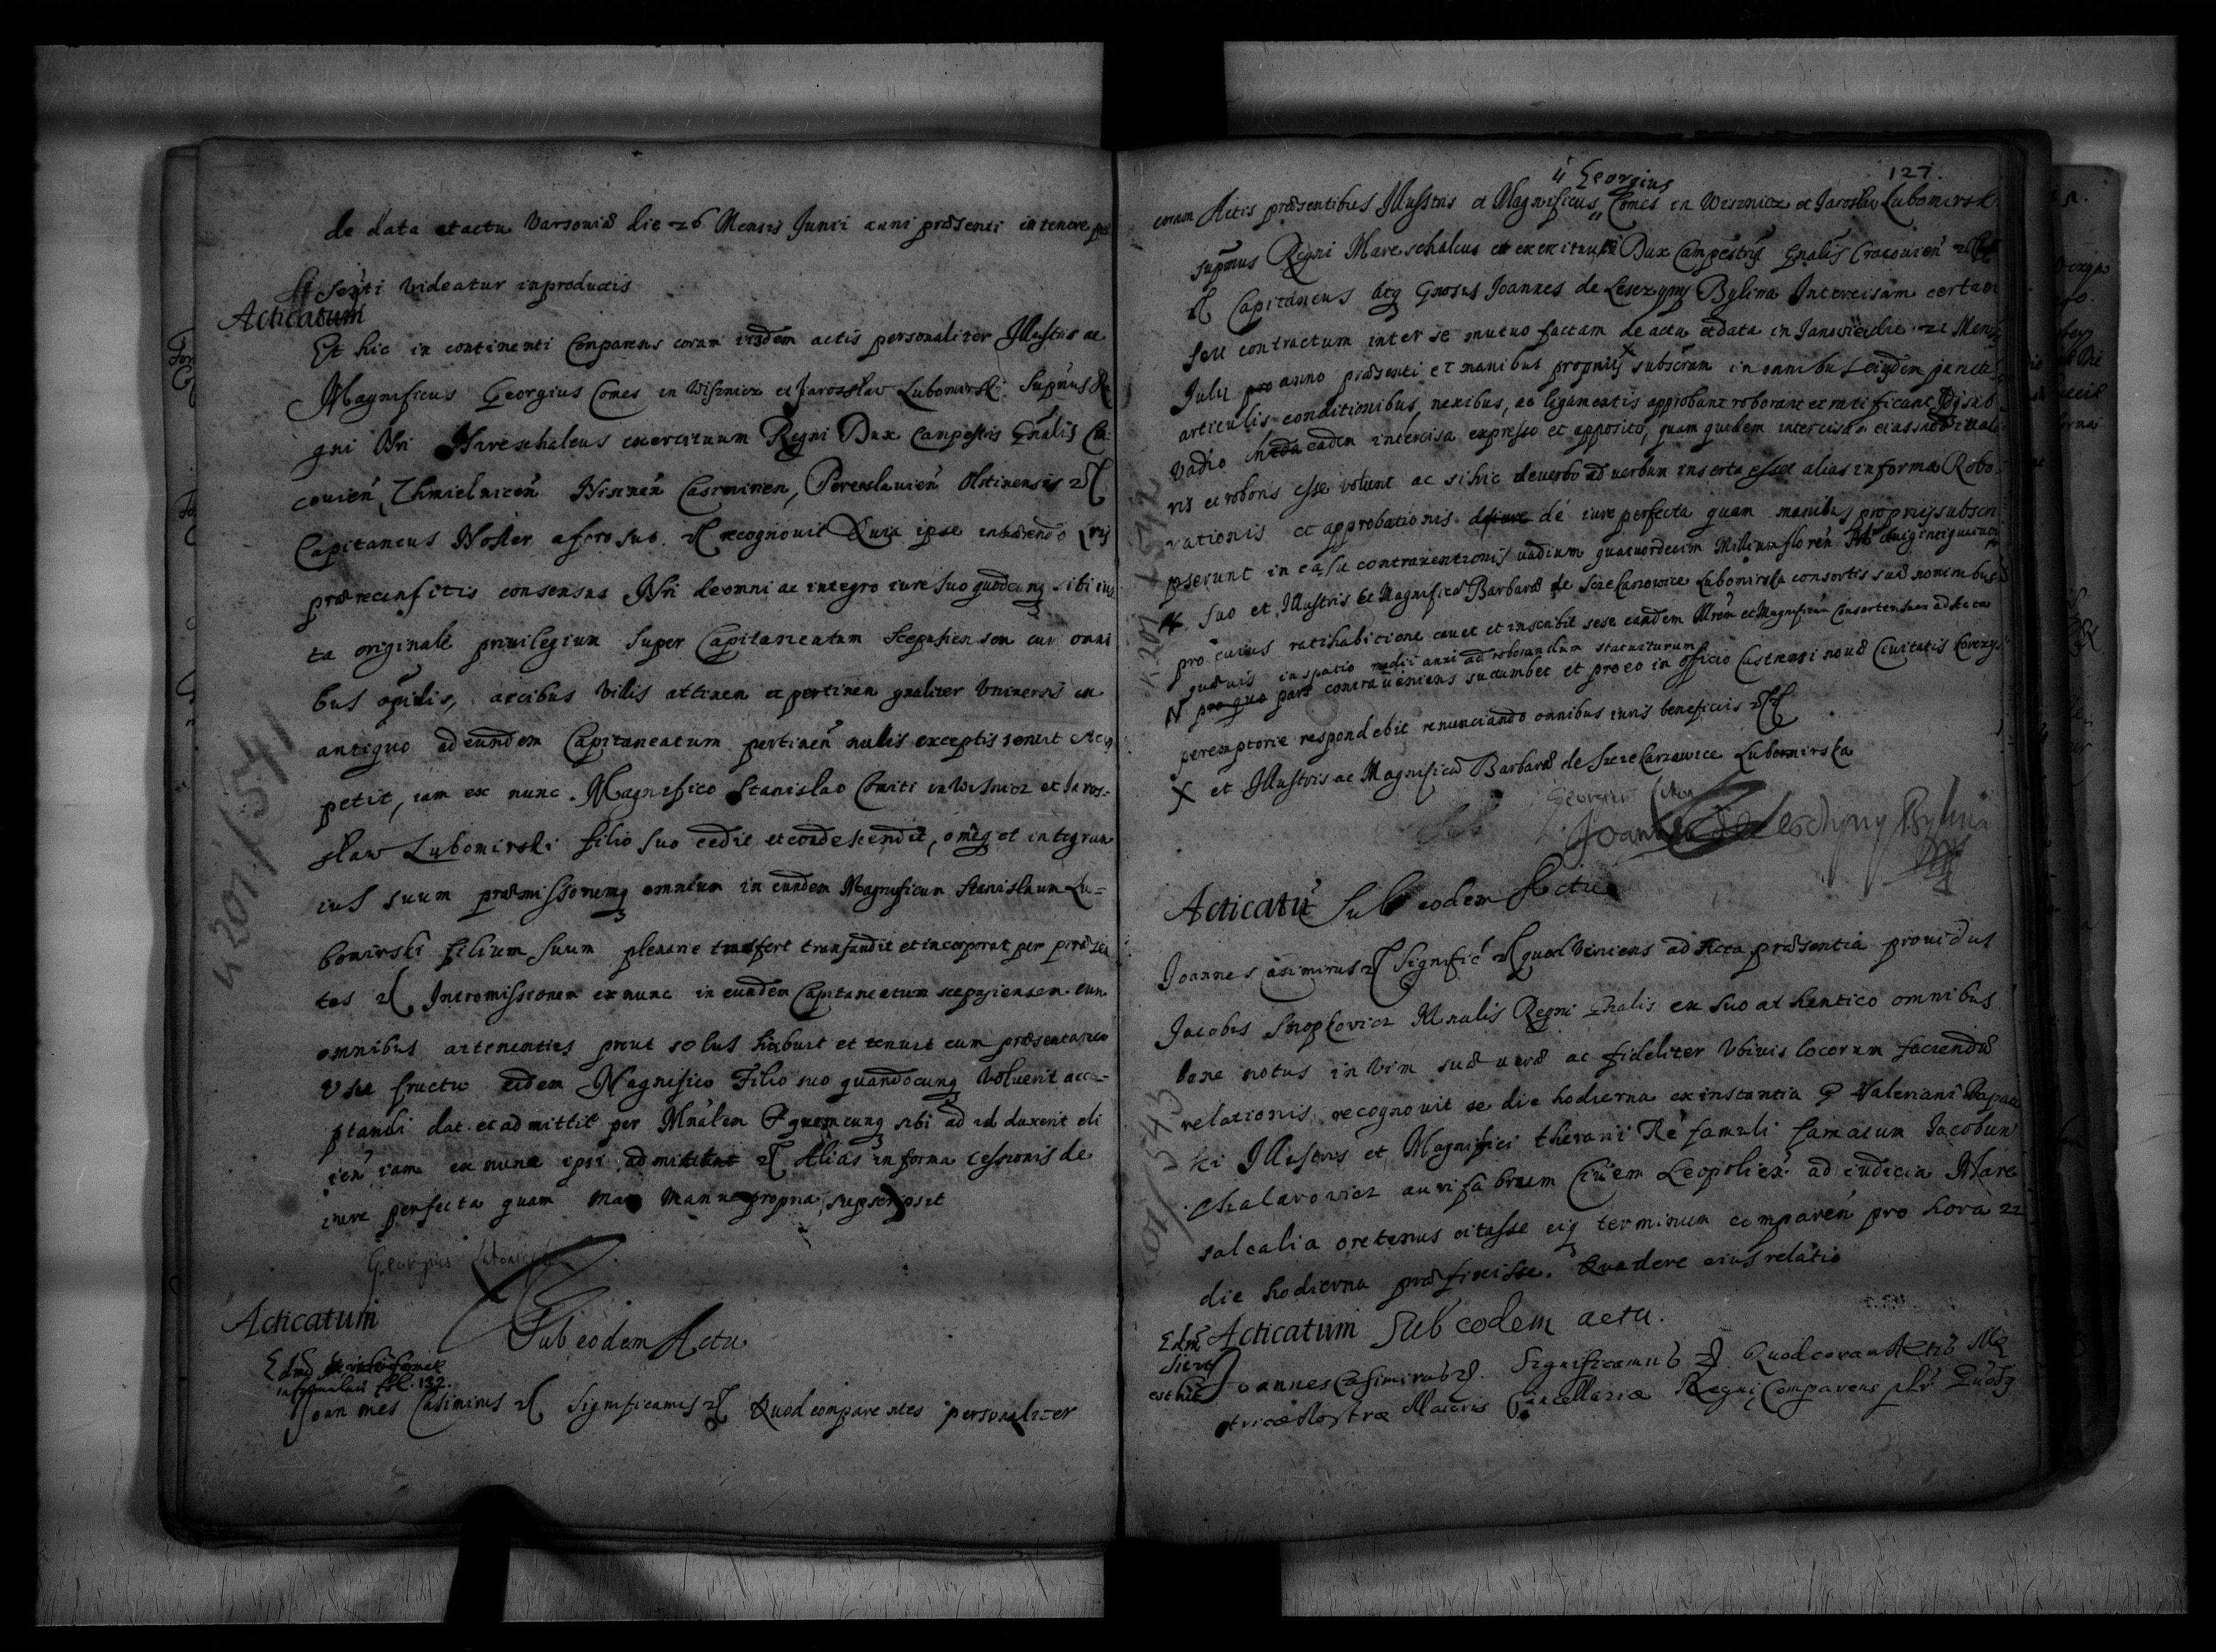 de data et actu Varsoviæ die 26 Mensis Junii anni præsenti in tenore
senti videatur in productis
Acticatum
Et hic in continenti Comparens coram iisdem actis personaliter Illustris ac
Magnificus Georgius Comes in Wisznicz et Jarosław Lubomirski Supmus Re
gni Nri Mareschalcus exercituum Regni Dux Campestris Gnalis Cra
covien̄ Chmielnicen̄ Nisinen̄ Casimirien, Pereaslavien̄ Olstinensis
Capitaneus Noster a foro suo recognovit Quia ipse inhærendo Lris
præ recensitis consensus Nri de omni ac integro iure suo quodcunq sibi iux
ta originale privilegium super Capitaneatum Scepusiensem cum omni
bus opidis, arcibus villis attinen et pertinen gnaliter Vniversis ex
antiquo ad eundem Capitaneatum pertinen̄ nullis exceptis servit
petit, iam ex nunc Magnifico Stanislao Comiti in Wisnicz et Jaros=
sław Lubomirski filio suo cedit et condescendit, omeq et integrum
ius suum præmissorumq omnium in eundem Magnificum Stanislaum Lu=
bomirski filium suum plenarie transfert transfundit et incorporat per præsen
tes Intromissionem ex nunc in eundem Capitaneatum scepusiensem cum
omnibus attenentiis prout solus habuit et tenuit cum præsentaneo
Vsu fructu eidem Magnifico Filio suo quandocunq voluerit acce=
ptandi dat et admittit per Mnalem Quemcunq sibi ad id duxerit eli
gen̄ iam ex nunc ipsi admittitur Alias in forma cessionis de
iure perfecta quam manu propria supscripsit
Georgius Lubomirski
Acticatum
Sub eodem Actu
fol. 132.
Joannes Casimirus Significamus Quod comparentes personaliter
k 201/541
127.
Georgius
coram Actis præsentibus Illustris et Magnificus Comes in Wisznicz et Jarosław Lubomirski
supmus Regni Mareschalcus et exercituum Dux Campestris Gnalis Cracovien̄
Capitaneus atq Gnosus Joannes de Leszczyny Bylina Intercisam certam
seu contractum inter se mutuo factam de actu et data in Janoviec die 21 Mensis
Julii pro anno præsenti et manibus propriis subscram in omnibus eiusdem punctis
articulis conditionibus, nexibus, ac ligamentis approbant roborant et ratificant
vadio in eadem intercisa expresso et apposito, quam quidem intercisam eiasmodi vali
ris et roboris esse volunt ac si hic de verbo ad verbum inserta esset alias in forma Robo=
rationis et approbationis de iure perfecta quam manibus propriis subscri
pserunt in casu contraventionis vadium quatuordecim Millium floren̄
suo et Illustris et Magnificæ Barbaræ de Szczekarzowice Lubomirska consortis suæ nominibus
pro cuius ratihabitione cavet et inscribit sese eandem Illrem et Magnificam Consortem suam ad acta
quævis in spatio medii anni ad roborandum staturitarum
N pro quo pars contraveniens sucumbet et pro eo in officio Castrensi novæ Civitatis
peremptorie respondebit renunciando omnibus iuris beneficiis
X et Illustris ac Magnificæ Barbaræ de Szczekarzowice Lubomirska
Georgius
Joannes de Leszczyny Bylina
k 201/542
Acticatū Sub eodem Actu
Joannes Casimirus Significa quod veniens ad Acta præsentia providus
Jacobus Snopkovicz Mnalis Regni Gnalis ex suo athentico omnibus
bene notus in vim suæ veræ ac fideliter Vbivis locorum faciendæ
relationis recognovit se die hodierna ex instantia G Valeriani
ki Illustris et Magnifici thesarii Re famuli famatum Jacobum
Chalarowicz aurifabrum Civem Leopolien̄ ad iudicia Mare
salcalia oretenus citasse eiq terminum comparen̄ pro hora 22
die hodierna præfixisse. Quadere eius relatio
201/543
Acticatum Sub eodem actu.
est hic
Joannes Casimirus. Significamus Quod coram Actis Me
tricæ Nostræ Maioris Cancellariæ Regni Comparens